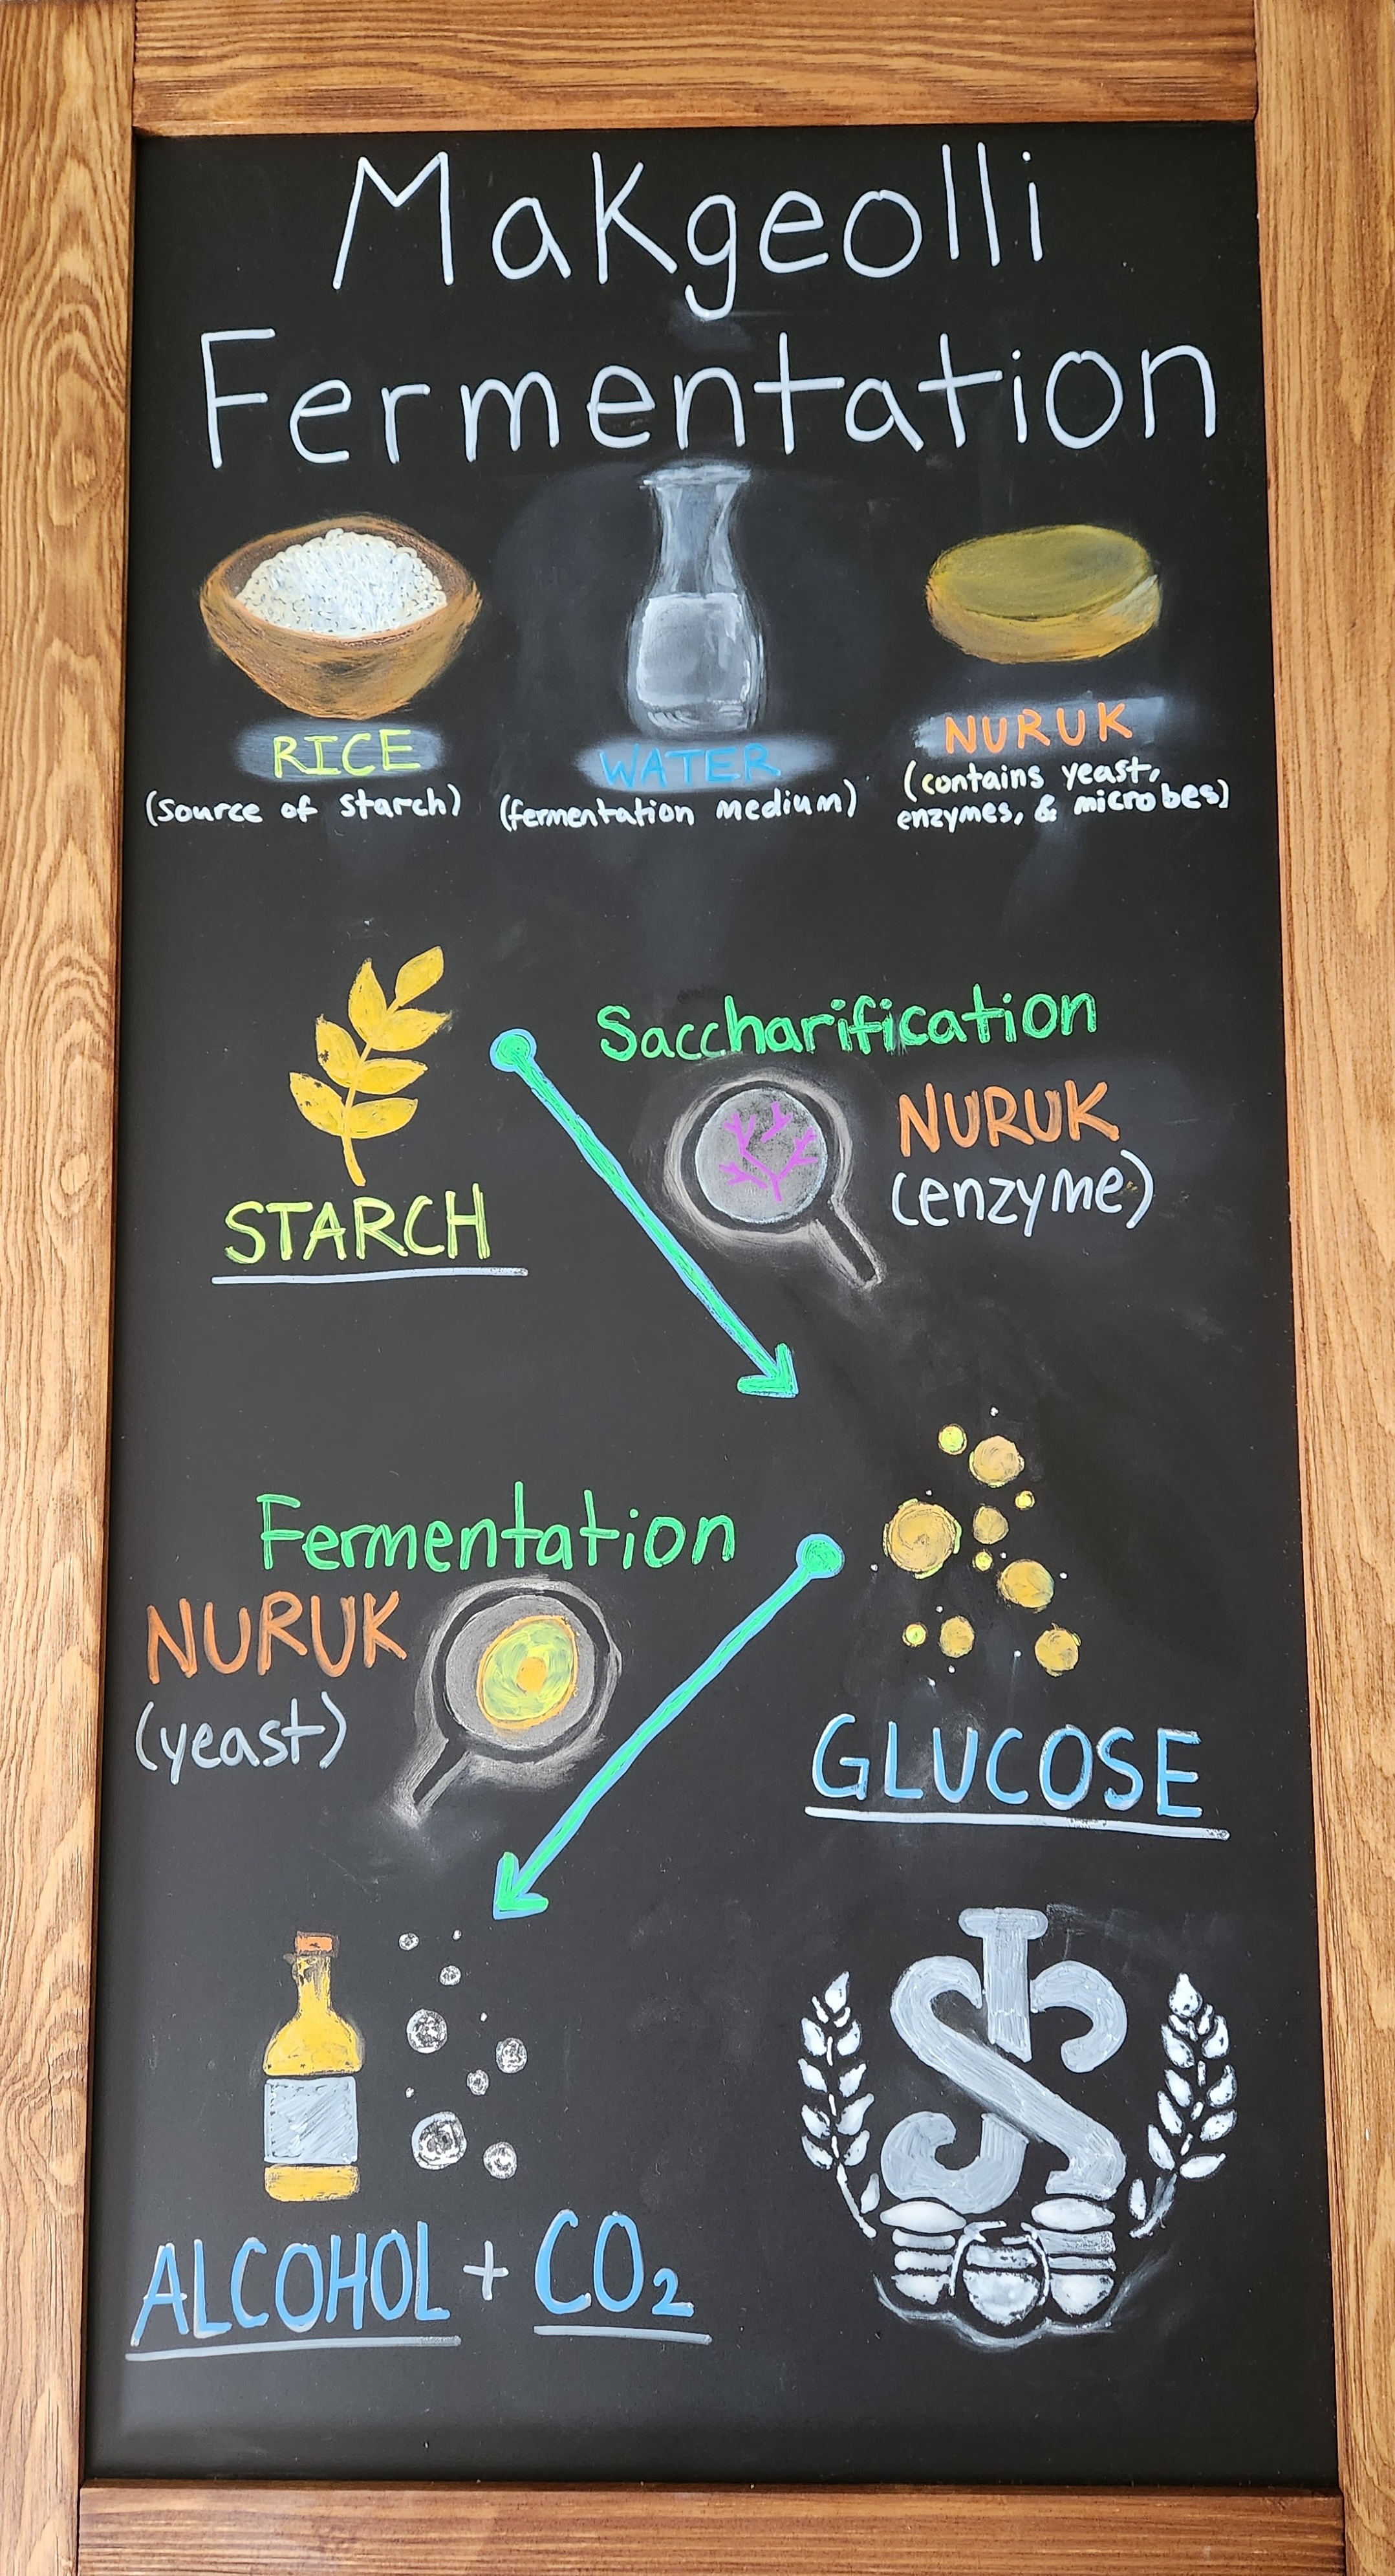 Makgeolli
Fermentation
RICE
(source of starch)
WATER
(fermentation medium)
NURUK
(contains yeast,
enzymes, & microbes)
Saccharification
NURUK
(enzyme)
STARCH
Fermentation
NURUK
(yeast)
GLUCOSE
ALCOHOL + CO₂